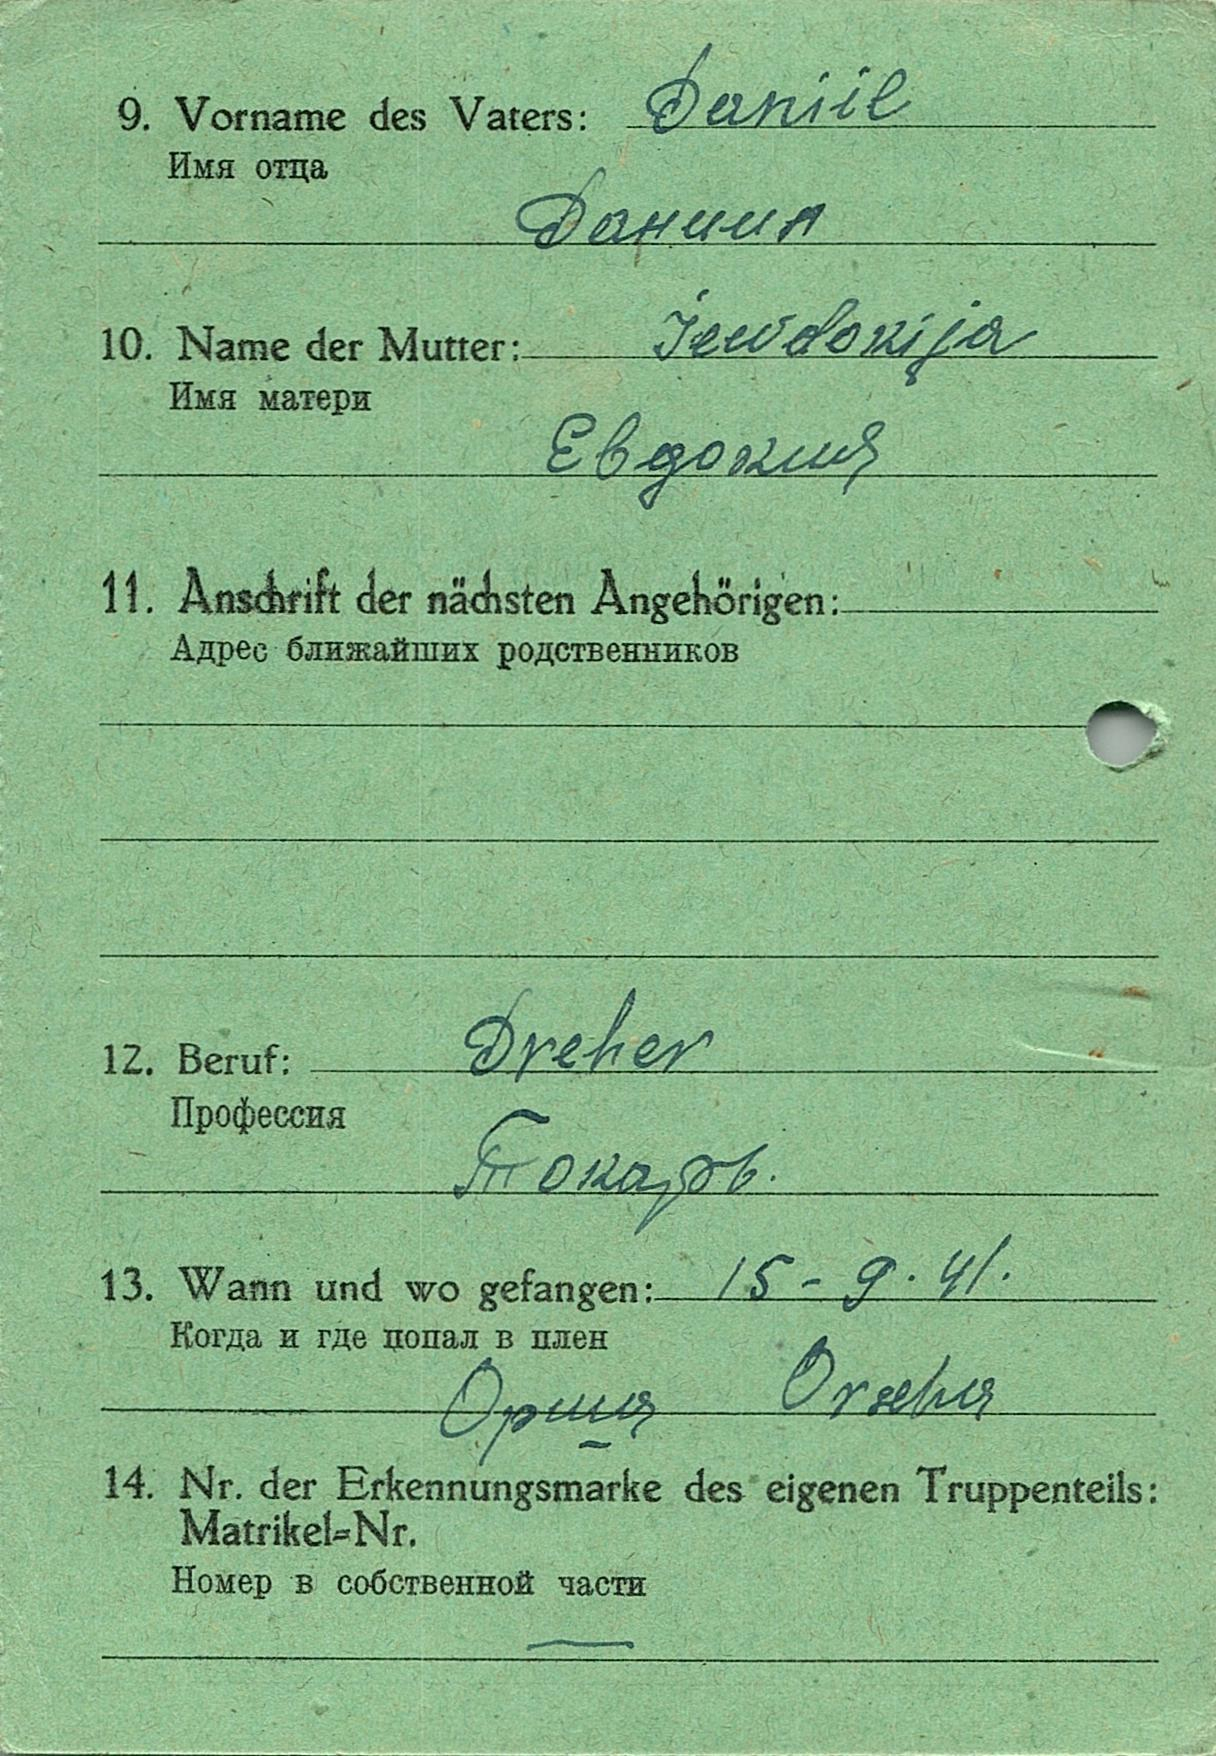 9. Vorname des Vaters: Daniil
Имя отца
Даниил
10. Name der Mutter: Jewdokija
Имя матери
Евдокия
11. Anschrift der nächsten Angehörigen:
Адрес ближайших родственников
12. Beruf: Dreher
Профессия
Токарь.
13. Wann und wo gefangen: 15-9.41.
Когда и где попал в плен
Орша
14. Nr. der Erkennungsmarke des eigenen Truppenteils:
Matrikel=Nr.
Номер в собственной части
—